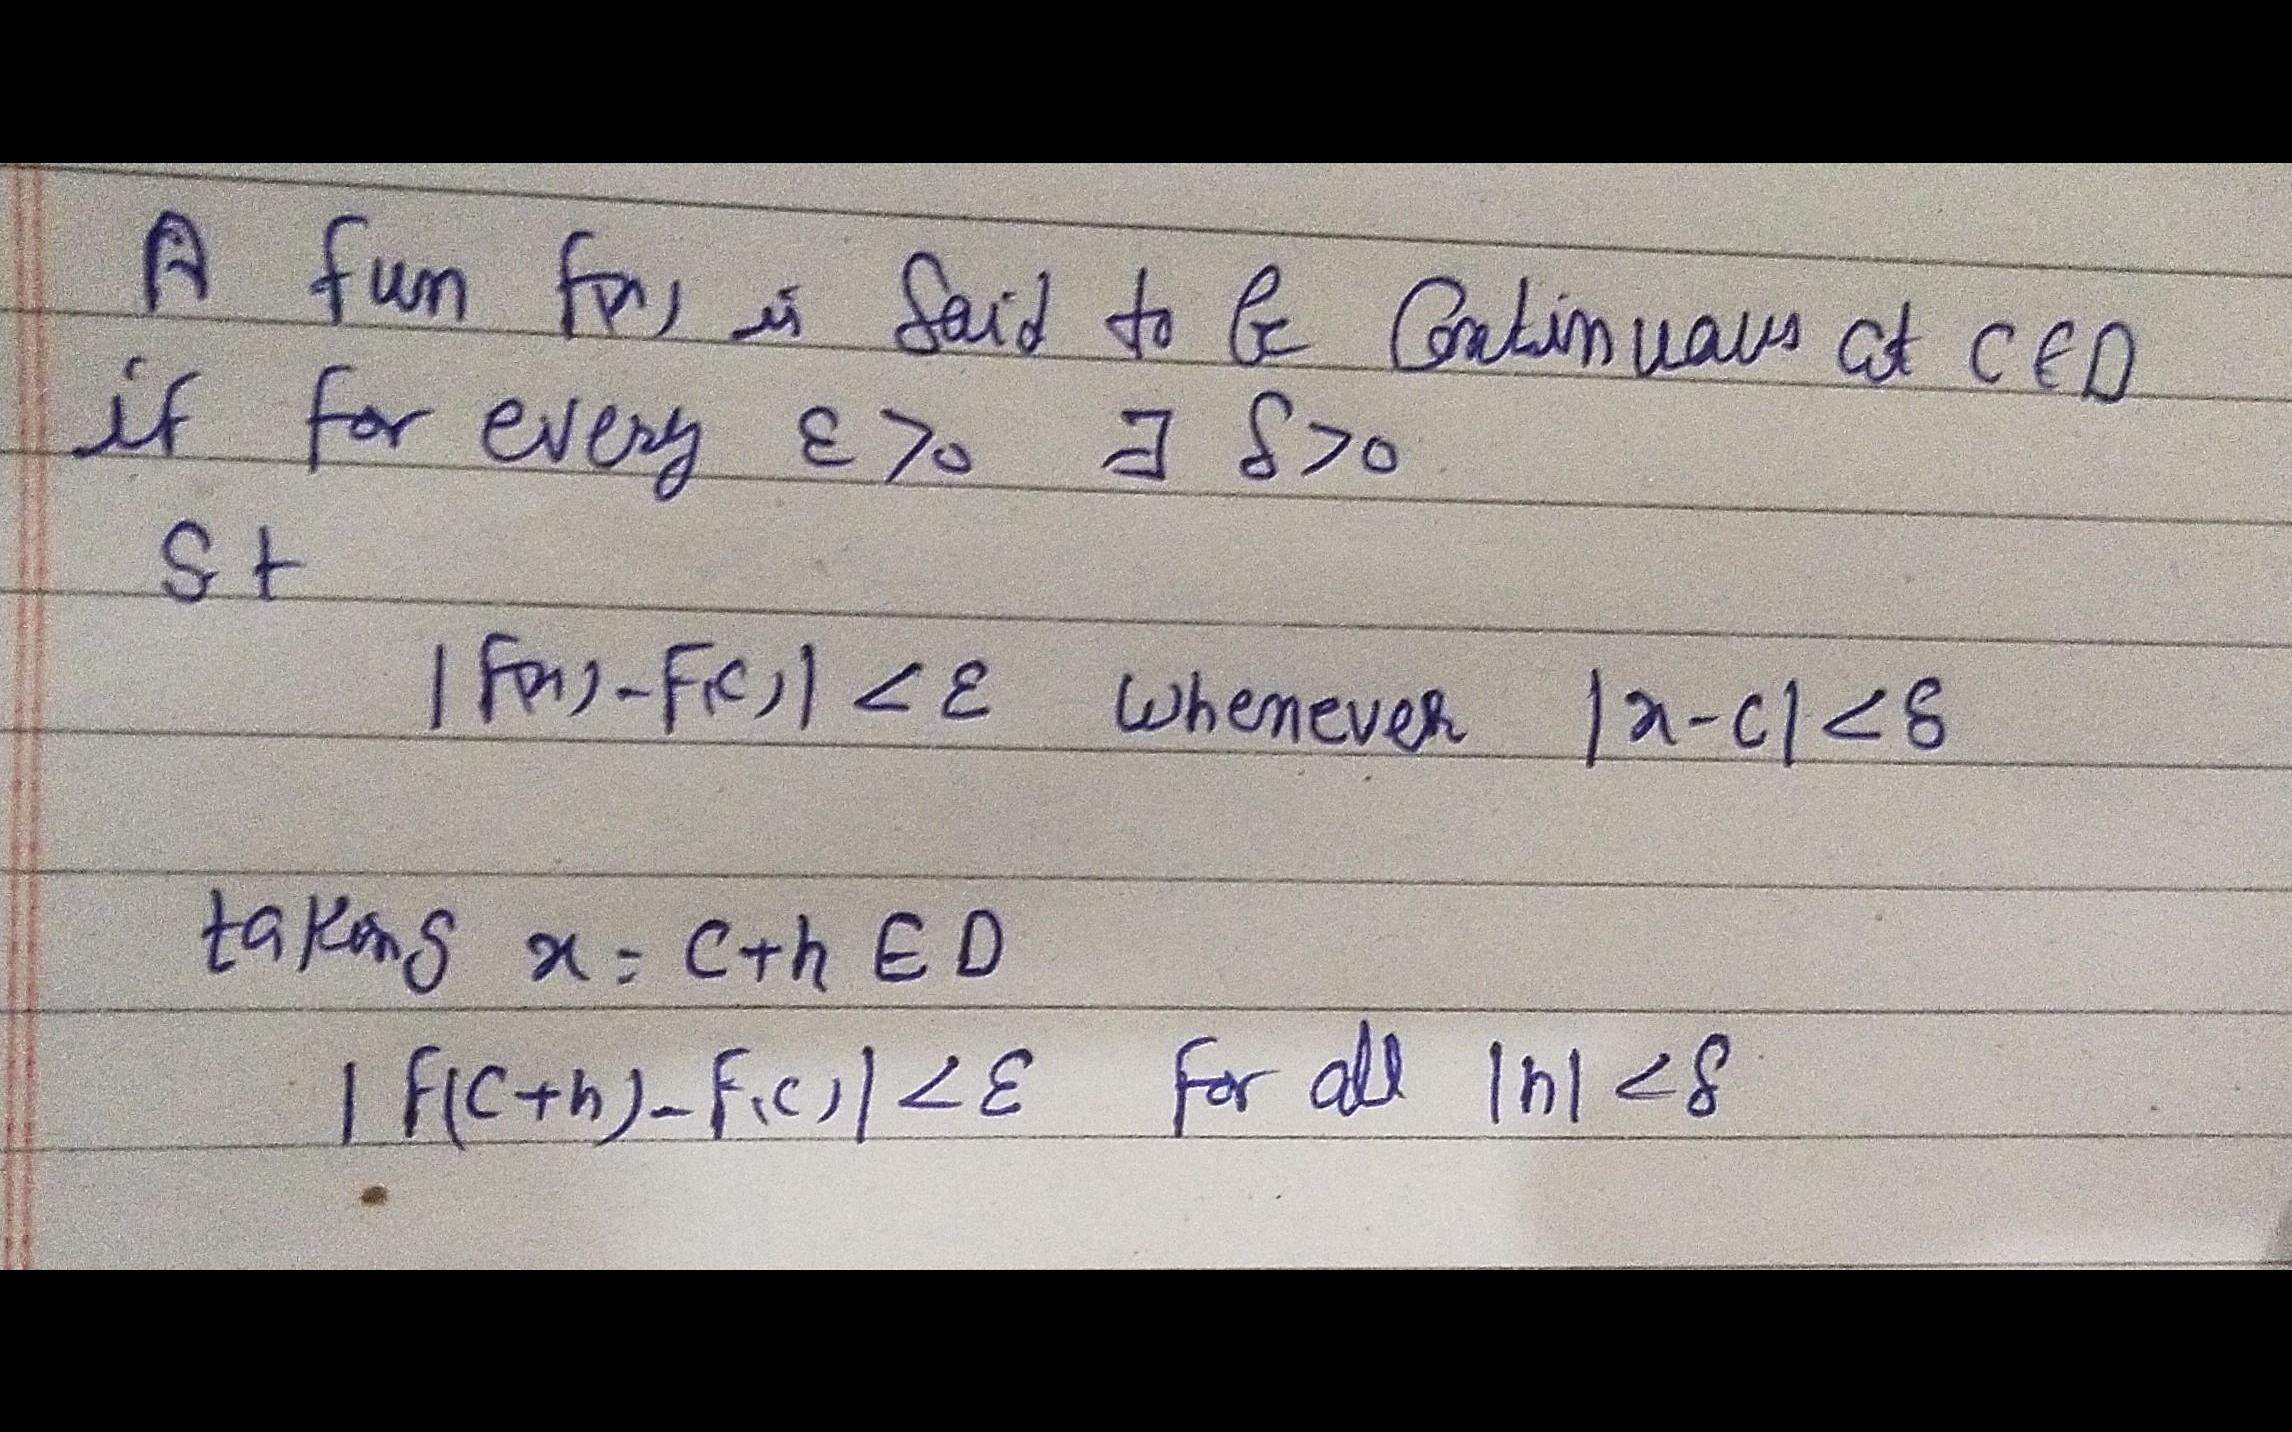 A fun f(x) is said to be Continuous at C ∈ D
if for every ε>0 ∃ δ>0
St
|f(x)-f(c)| < ε whenever |x-c| < δ
taking x = C+h ∈ D
|f(C+h)-f(c)| < ε for all |h| < δ